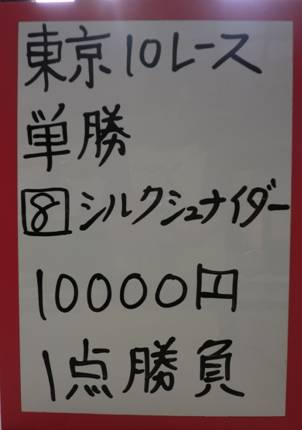 東京10レース
単勝
8 シルクシュナイダー
10000円
1点勝負